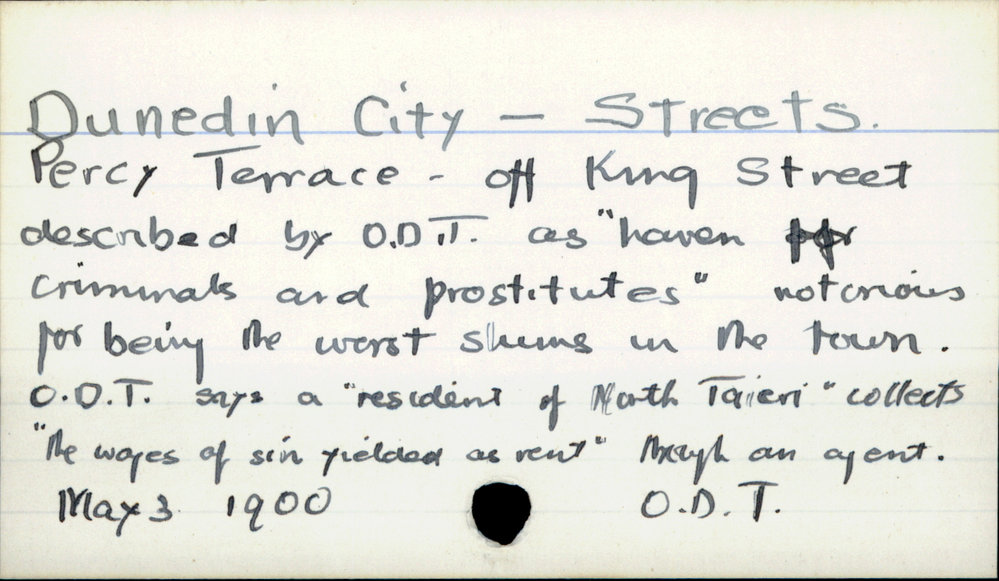 Dunedin City — Streets.
Percy Terrace - off King Street
described by O.D.T. as "haven for
criminals and prostitutes" notorious
for being the worst slums in the town.
O.D.T. says a "resident of North Taieri" collects
"the wages of sin yielded as rent" through an agent.
May 3 1900 O.D.T.